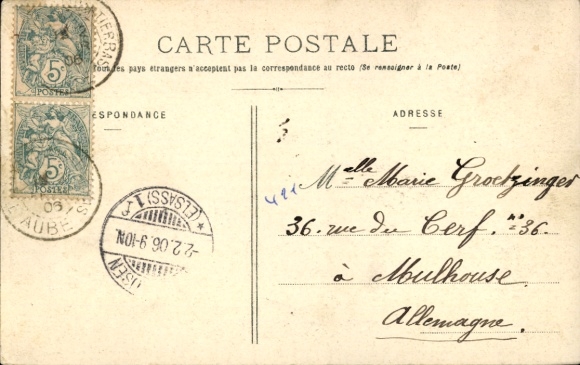 CARTE POSTALE
Tous les pays étrangers n'acceptent pas la correspondance au recto (Se renseigner à la Poste)
ADRESSE
5c
POSTES
5c
POSTES
06
AUBE
(ELSASS)
1
-2.2.06.9-10N.
491
Melle Marie Groetzinger
36. rue du Cerf. no 36
à Mulhouse
Allemagne.